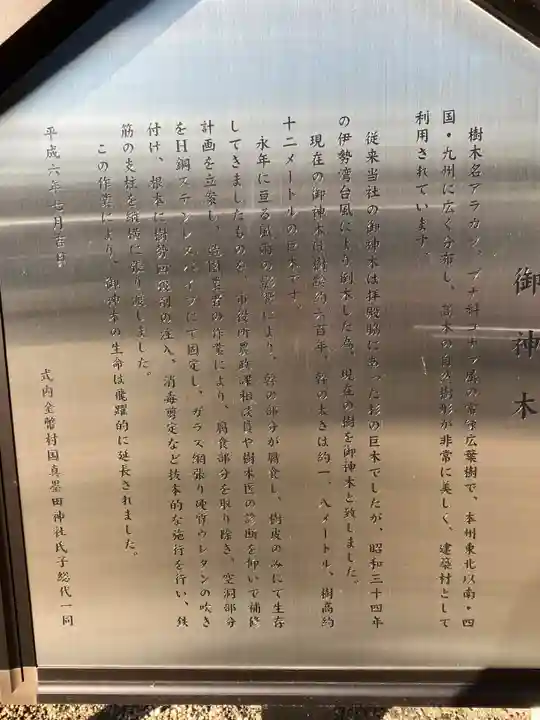 御神木
樹木名アラカシ、ブナ科コナラ属の常緑広葉樹で、本州東北以南・四
国・九州に広く分布し、高木の自然樹形が非常に美しく、建築材として
利用されています。
従来当社の御神木は拝殿脇にあった杉の巨木でしたが、昭和三十四年
の伊勢湾台風により倒木した為、現在の樹を御神木と致しました。
現在の御神木は樹齢約六百年、幹の太さは約一、八メートル、樹高約
十二メートルの巨木です。
永年に亘る風雨の影響により、幹の部分が腐食し、樹皮のみにて生存
してきましたものを、市役所農政課相談員や樹木医の診断を仰いで補修
計画を立案し、造園業者の作業により、腐食部分を取り除き、空洞部分
をH鋼ステンレスパイプにて固定し、ガラス網張り硬質ウレタンの吹き
付け、根本に樹勢回復剤の注入、消毒剪定など抜本的な施行を行い、鉄
筋の支柱を縦横に張り渡しました。
この作業により、御神木の生命は飛躍的に延長されました。
平成六年七月吉日
式内金幣村国真墨田神社氏子総代一同